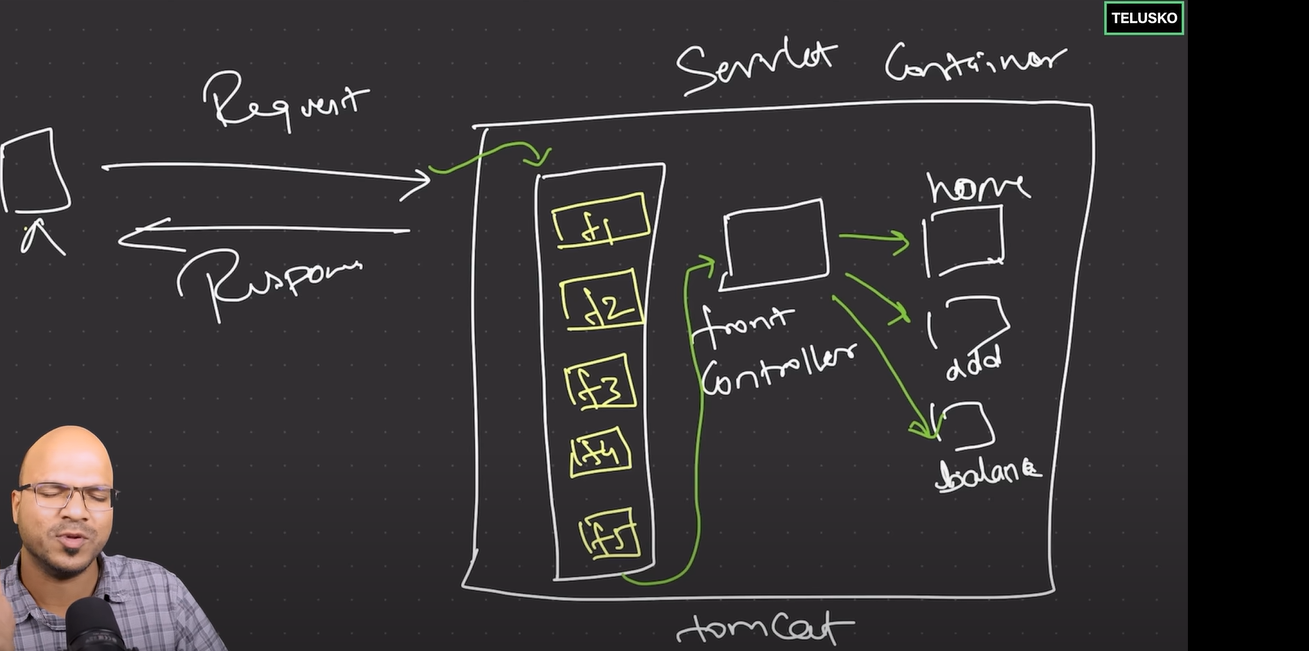 TELUSKO
Servlet Container
Request
Response
f1
f2
f3
f4
f5
front
Controller
home
add
balance
tomcat